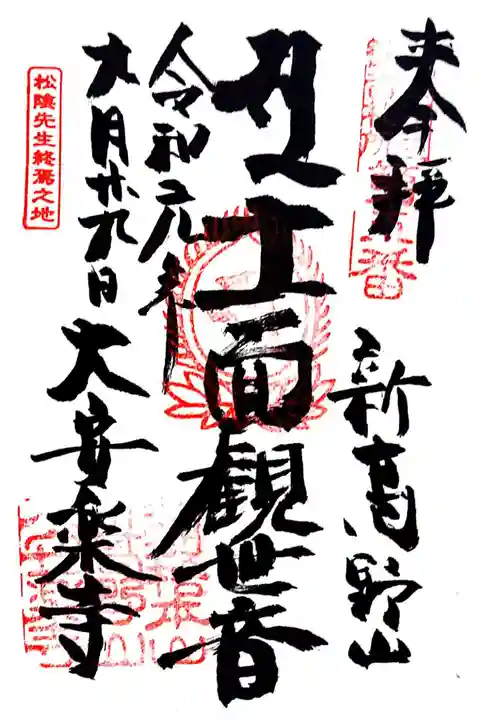 奉拝
新高野山
十一面観世音
令和元年
六月廿九日
大安楽寺
松陰先生終焉之地